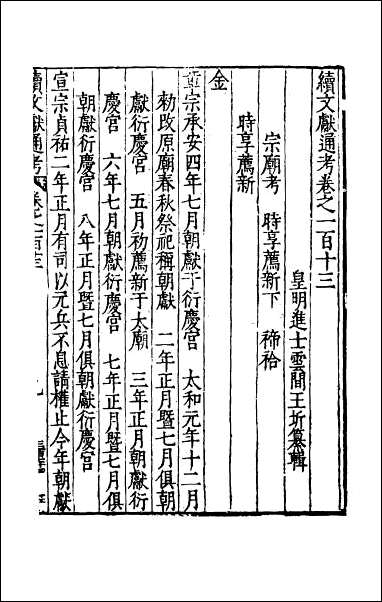 續文獻通考卷之一百十三
皇明進士雲間王圻纂輯
宗廟考 時享薦新下 禘祫
時享薦新
金
章宗承安四年七月朝獻于衍慶宮 太和元年十二月
勑改原廟春秋祭祀稱朝獻 二年正月暨七月俱朝
獻衍慶宮 五月初薦新于太廟 三年正月朝獻衍
慶宮 六年七月朝獻衍慶宮 七年正月暨七月俱
朝獻衍慶宮 八年正月暨七月俱朝獻衍慶宮
宣宗貞祐二年正月有司以元兵不息請權止今年朝獻
續文獻通考 卷之一百十三